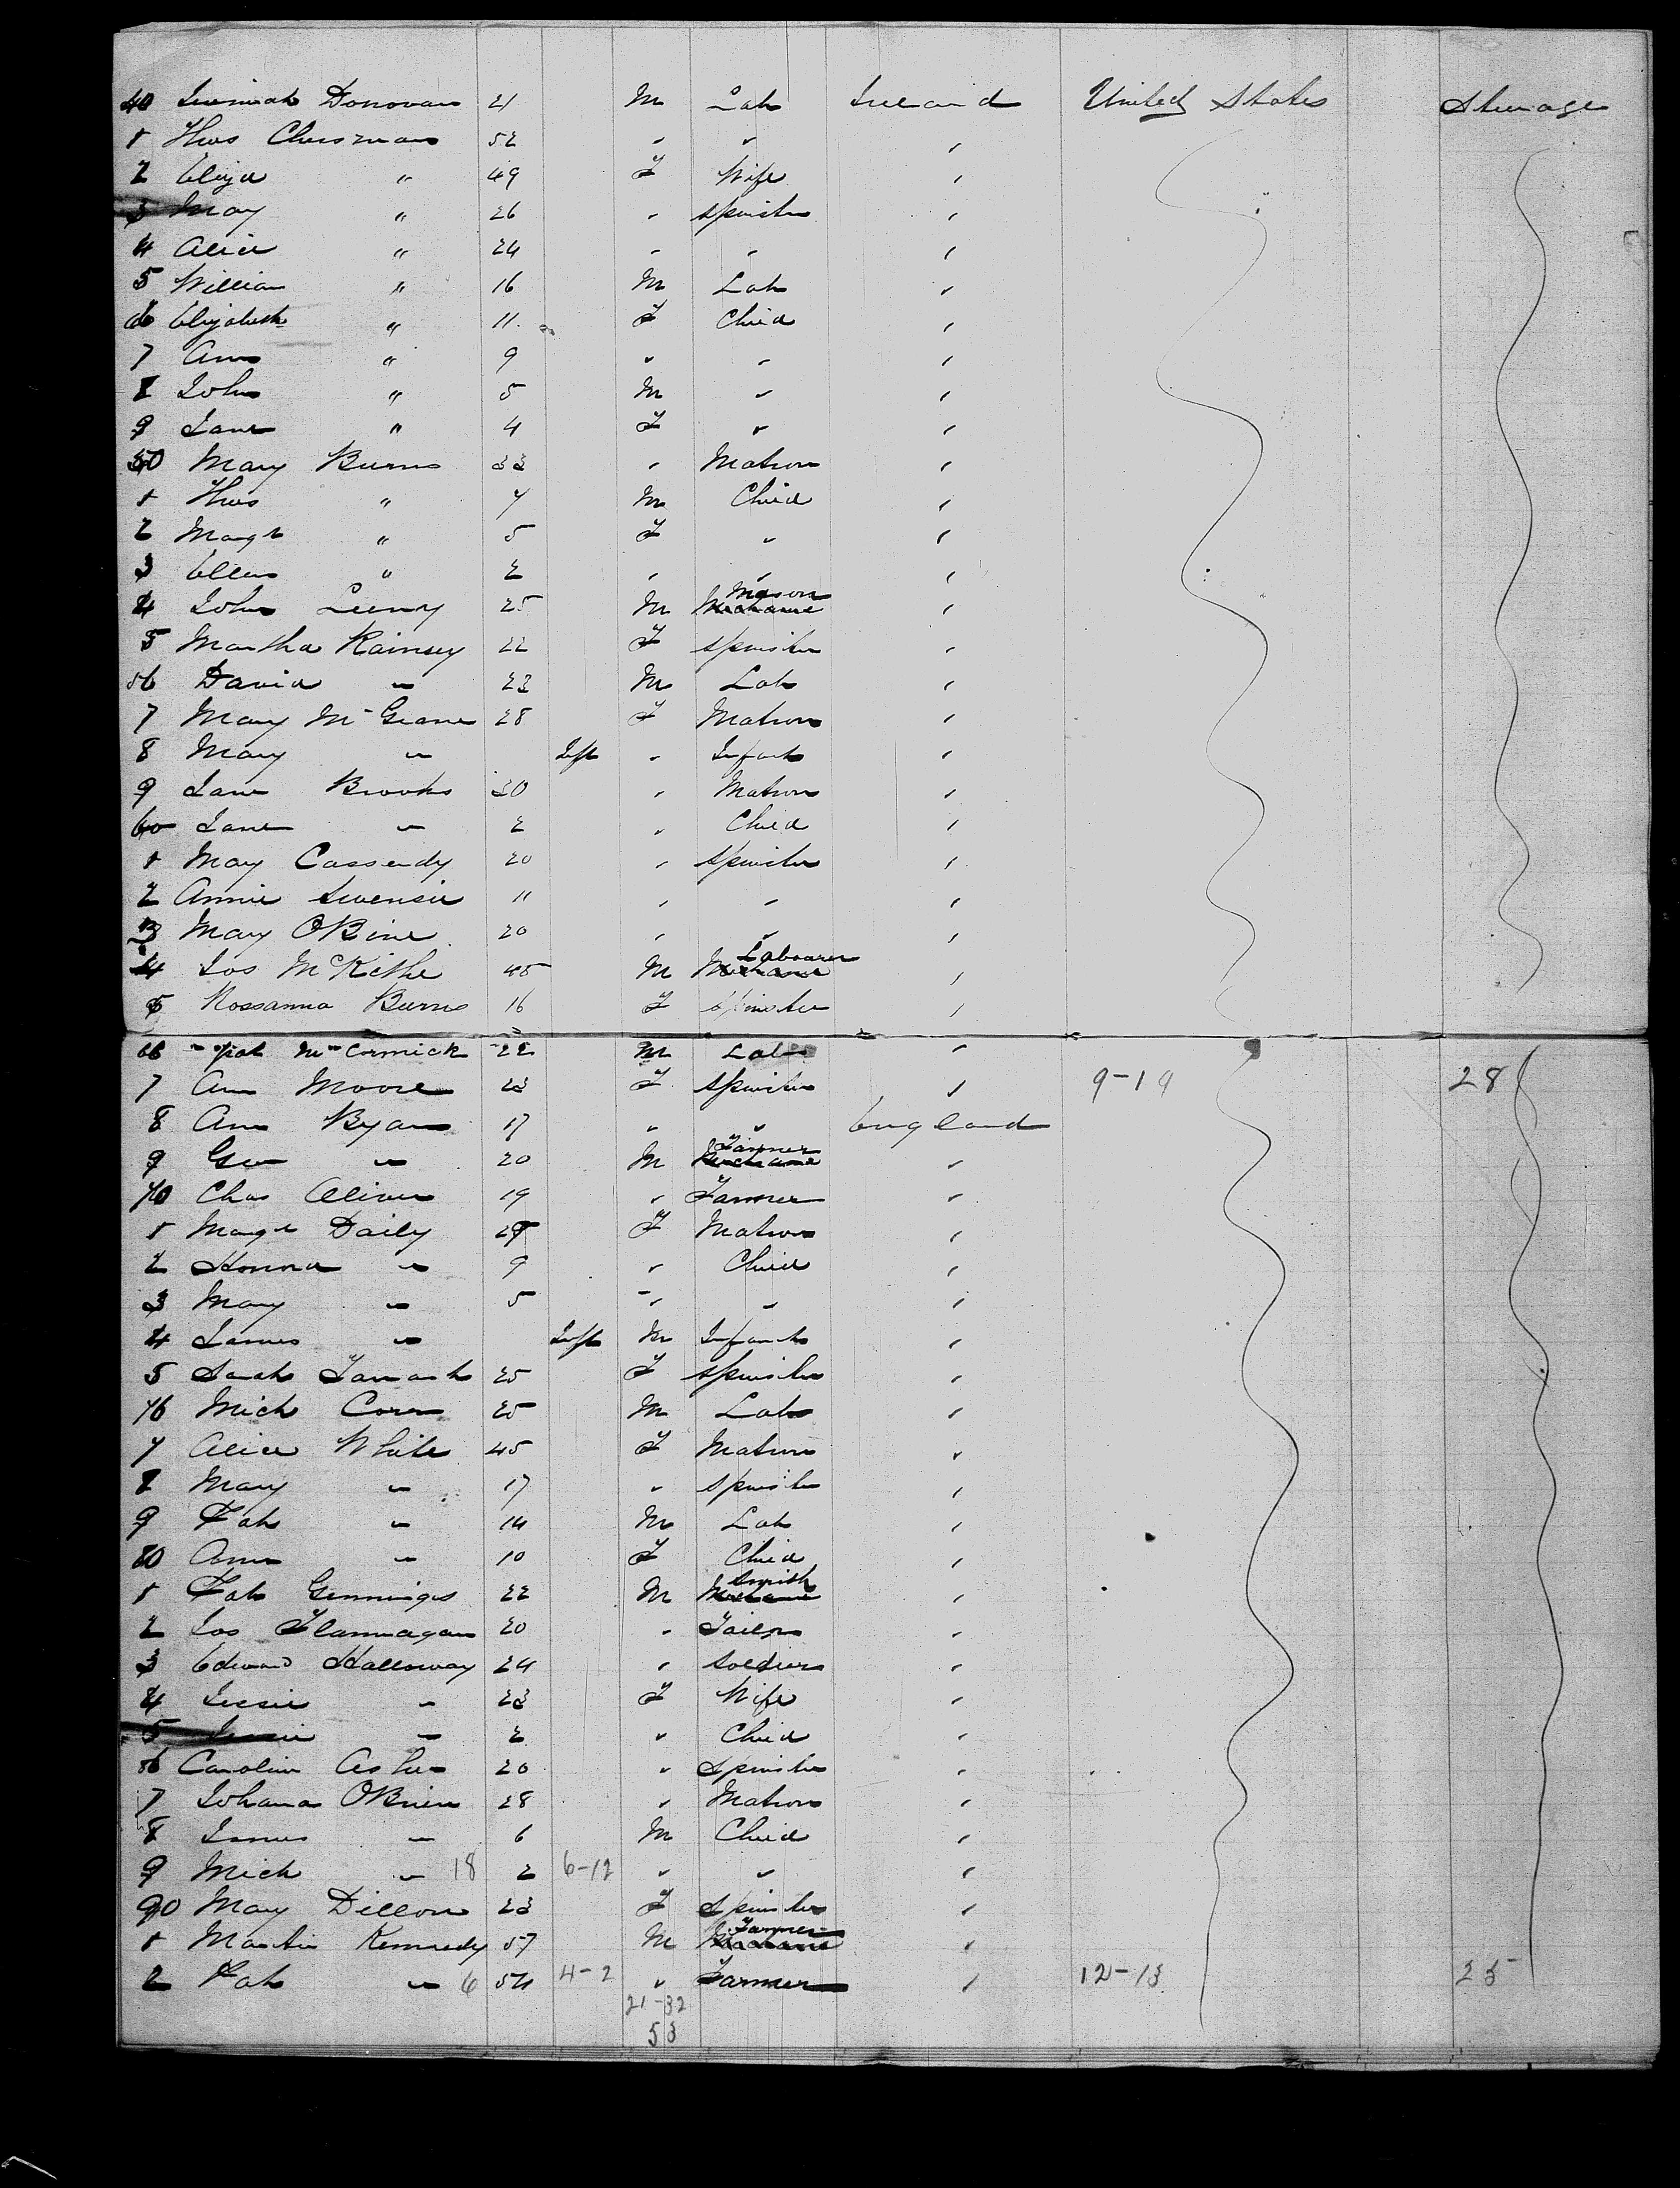 40 Jeremiah Donovan 21 M Lab Ireland United States Steerage
1 Thos Chusman 52 " " "
2 Eliza " 49 F Wife "
3 May " 26 " Spinster "
4 Alice " 24 " " "
5 William " 16 M Lab "
6 Elizabeth " 11 F Child "
7 Ann " 9 " " "
8 John " 5 M " "
9 Jane " 4 F " "
50 Mary Burns 33 " Matron "
1 Thos " 7 M Child "
2 Margt " 5 F " "
3 Ellen " 2 " " "
Mason
4 John Leeny 25 M Mechanic "
5 Martha Rainsey 22 F Spinster "
56 David " 23 M Lab "
7 Mary McGrane 28 F Matron "
8 Mary " Inft " Infant "
9 Jane Brooks 30 " Matron "
60 Jane " 2 " Child "
1 May Cassendy 20 " Spinster "
2 Annie 11 " " "
3 Mary OBine 20 " " "
Labourer
4 Jos McKithe 45 M Mechanic "
5 Rossanna Burns 16 F Spinster "
66 Pat McCormick 22 M Lab "
7 Ann Moore 23 F Spinster " 9-19 28
8 Ann Ryan 17 " " England
Farmer
9 Geo " 20 M Mechanic "
70 Chas Oliver 19 " Farmer "
1 Margt Daily 29 F Matron "
2 Honora " 9 " Child "
3 Mary " 5 " " "
4 James " Inft M Infant "
5 Sarah 25 F Spinster "
76 Mich Corr 25 M Lab "
7 Alice White 45 F Matron "
8 Mary " 17 " Spinster "
9 Pat " 14 M Lab "
80 Ann " 10 F Child "
Smith
1 Pat Gennings 22 M Mechanic "
2 Jos Flannagan 20 " Tailor "
3 Edward Halloway 24 " Soldier "
4 Jessie " 23 F Wife "
5 Jessie " 2 " Child "
86 Caroline Asher 20 " Spinster "
7 Johana OBrien 28 " Matron "
8 James " 6 M Child "
9 Mich " 18 2 6-12 " " "
90 Mary Dillon 23 F Spinster "
Farmer
1 Martin Kennedy 57 M Mechanic "
2 Pat " 6 54 4-2 " Farmer " 12-13 25
21-32
53